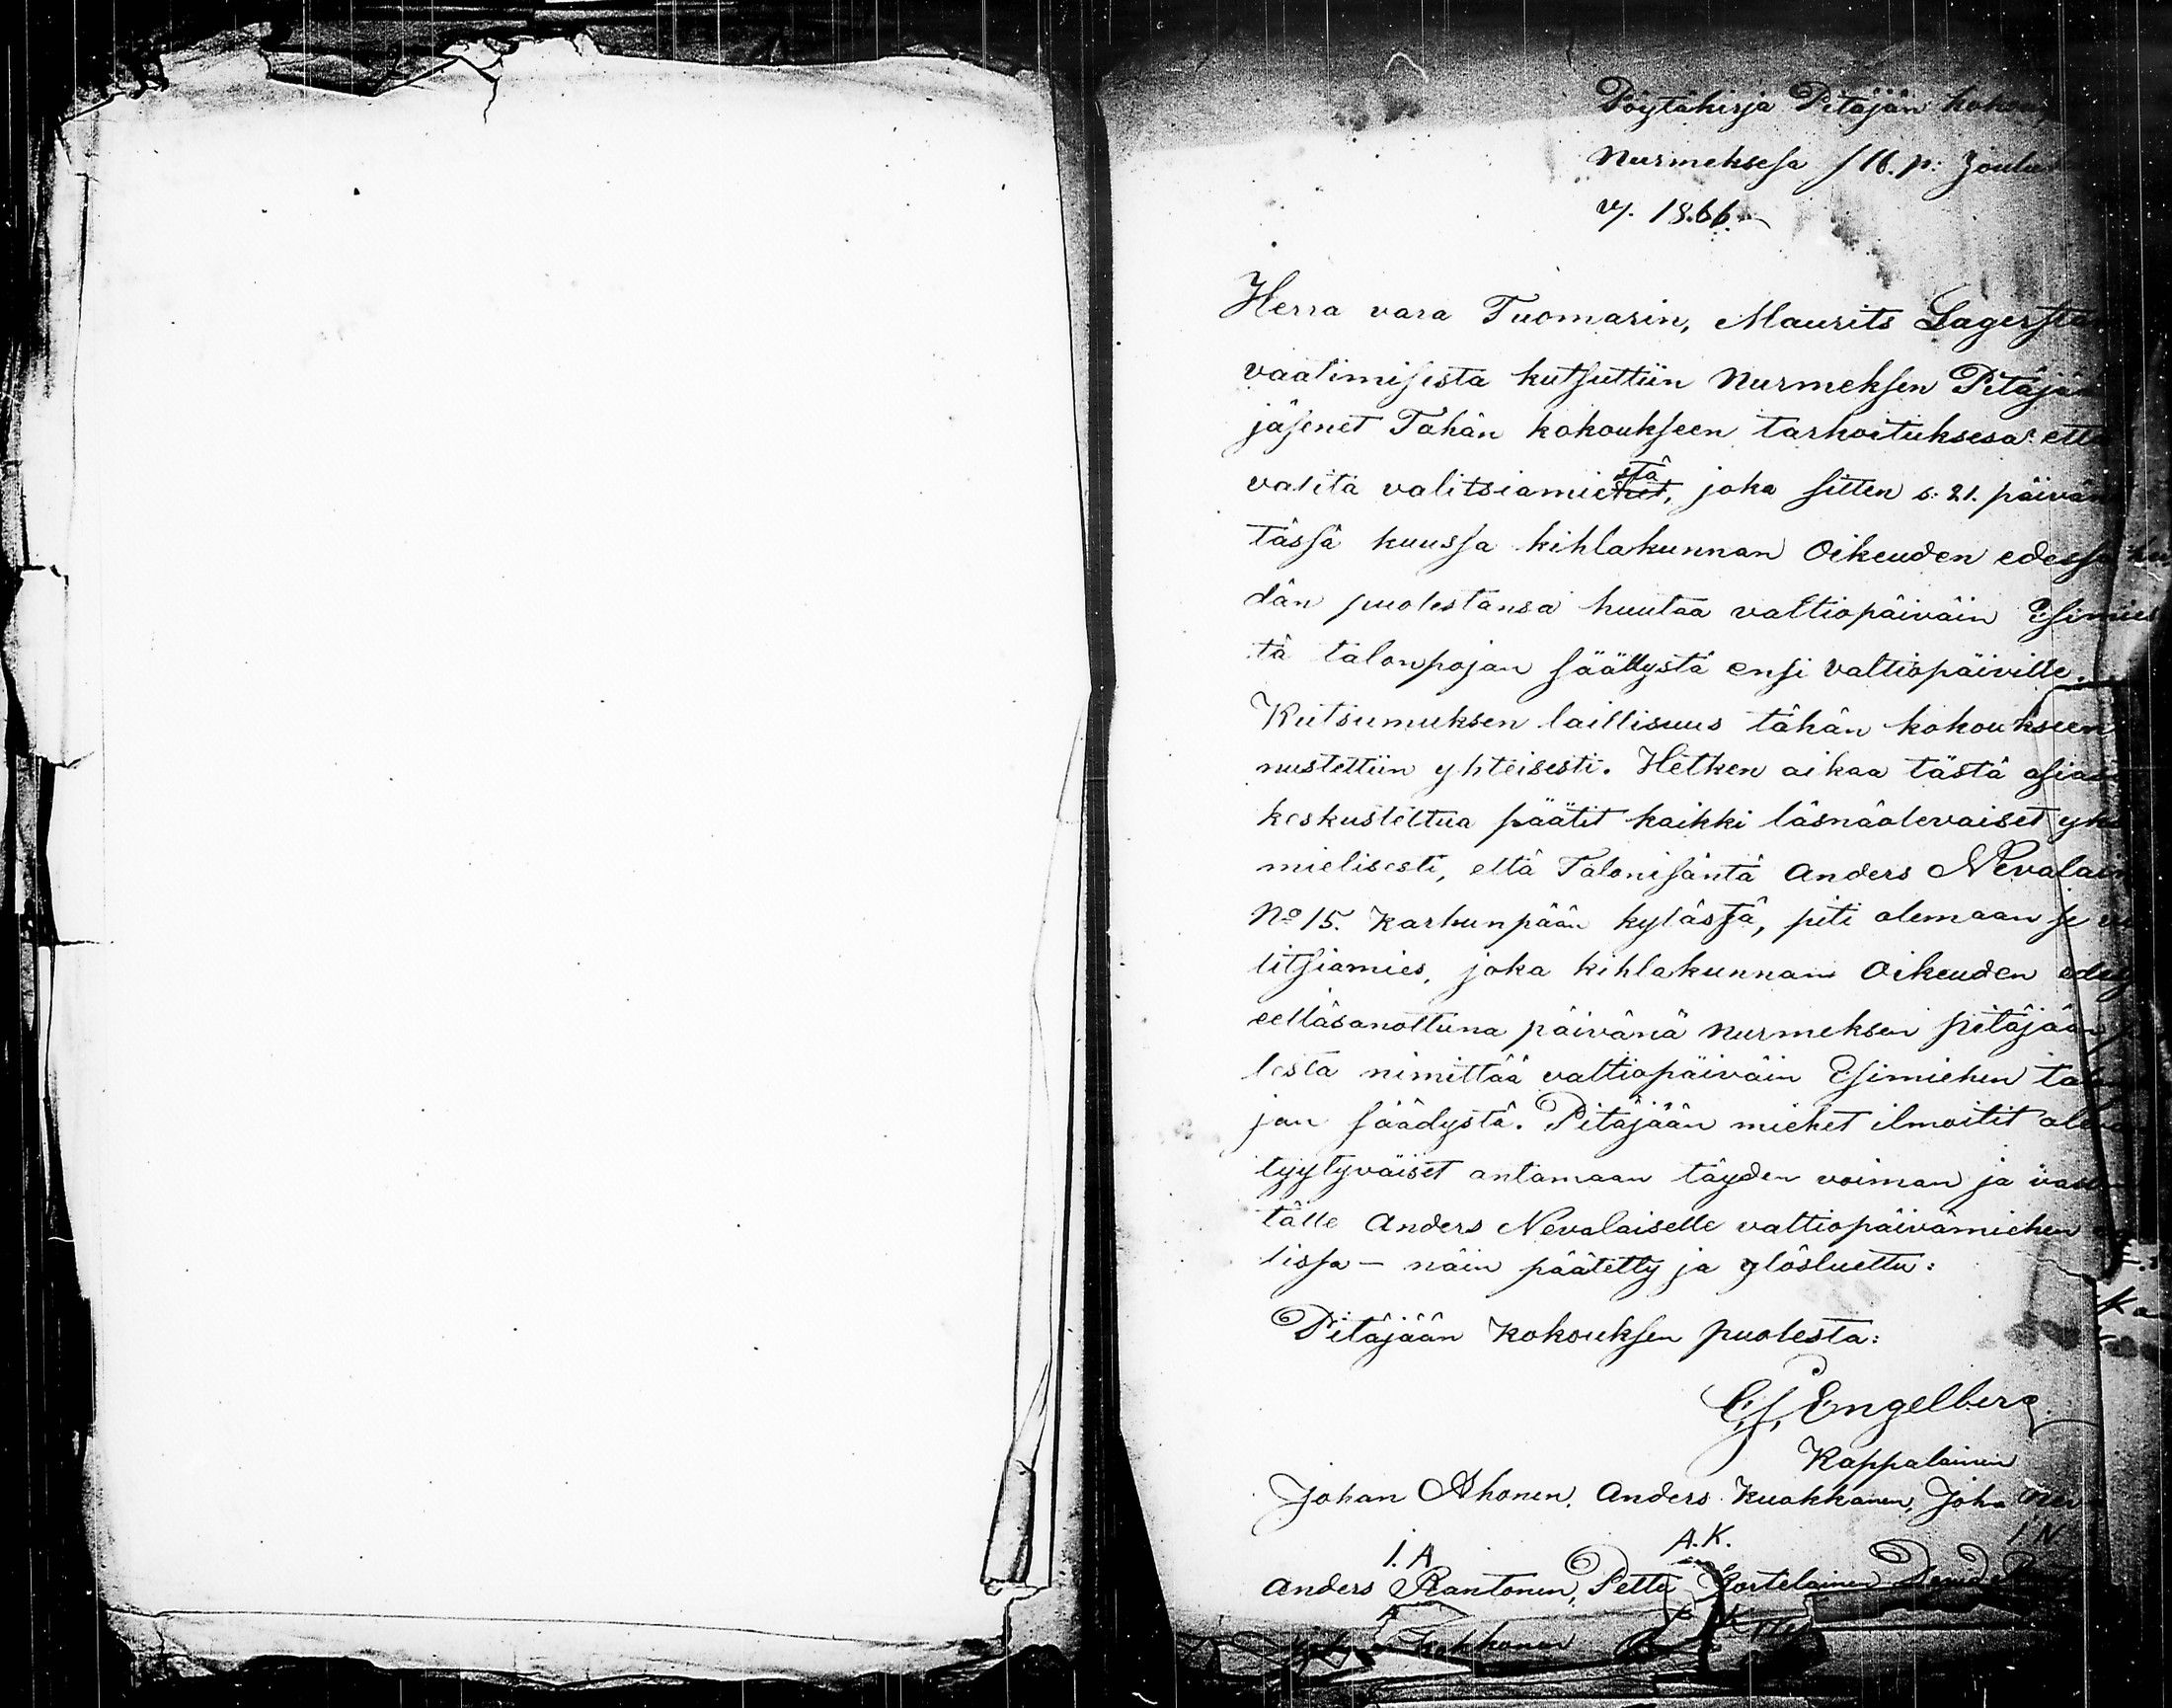 Pöytäkirja Pitäjän kokouk
Nurmeksesa
v. 1866.
Herra vara Tuomarin, Maurits Lagerst
vaatimisesta kutsuttiin Nurmeksen Pitäjän
jäsenet Tähän kokoukseen tarkoituksesa että
valita valitsiamiestä, joka sitten s. 21. päivän
tässä kuussa kihlakunnan Oikeuden edessä
dän puolestansa huutaa valtiopäiväin Esimies
tä talonpojan säättystä ensi valtiopäiville.
Kutsumuksen laillisuus tähän kokoukseen
nustettiin yhteisesti. Hetken aikaa tästä asias
keskusteltua päätit kaikki läsnäolevaiset yks
mielisesti, että Talonisäntä Anders Nevalain
No 15. Karhunpään kylässä, piti olemaan se va
litsiamies, joka kihlakunnan Oikeuden edes
eelläsanottuna päivänä Nurmeksen pitäjään
lesta nimittää valtiopäiväin Esimiehen tal
jan säädystä. Pitäjään miehet ilmoitit ole
tyytyväiset antamaan täyden voiman ja
tälle Anders Nevalaiselle valtiopäivämiehen
lissa - näin päätetty ja ylösluettu:
Pitäjään Kokouksen puolesta:
Engelberg
Kappalainen
Johan Ahonen, Anders Kuokkanen, Joha Nev
I. A A.K. I N
Anders Rantonen, Petter Kortelainen David
Kokkonen